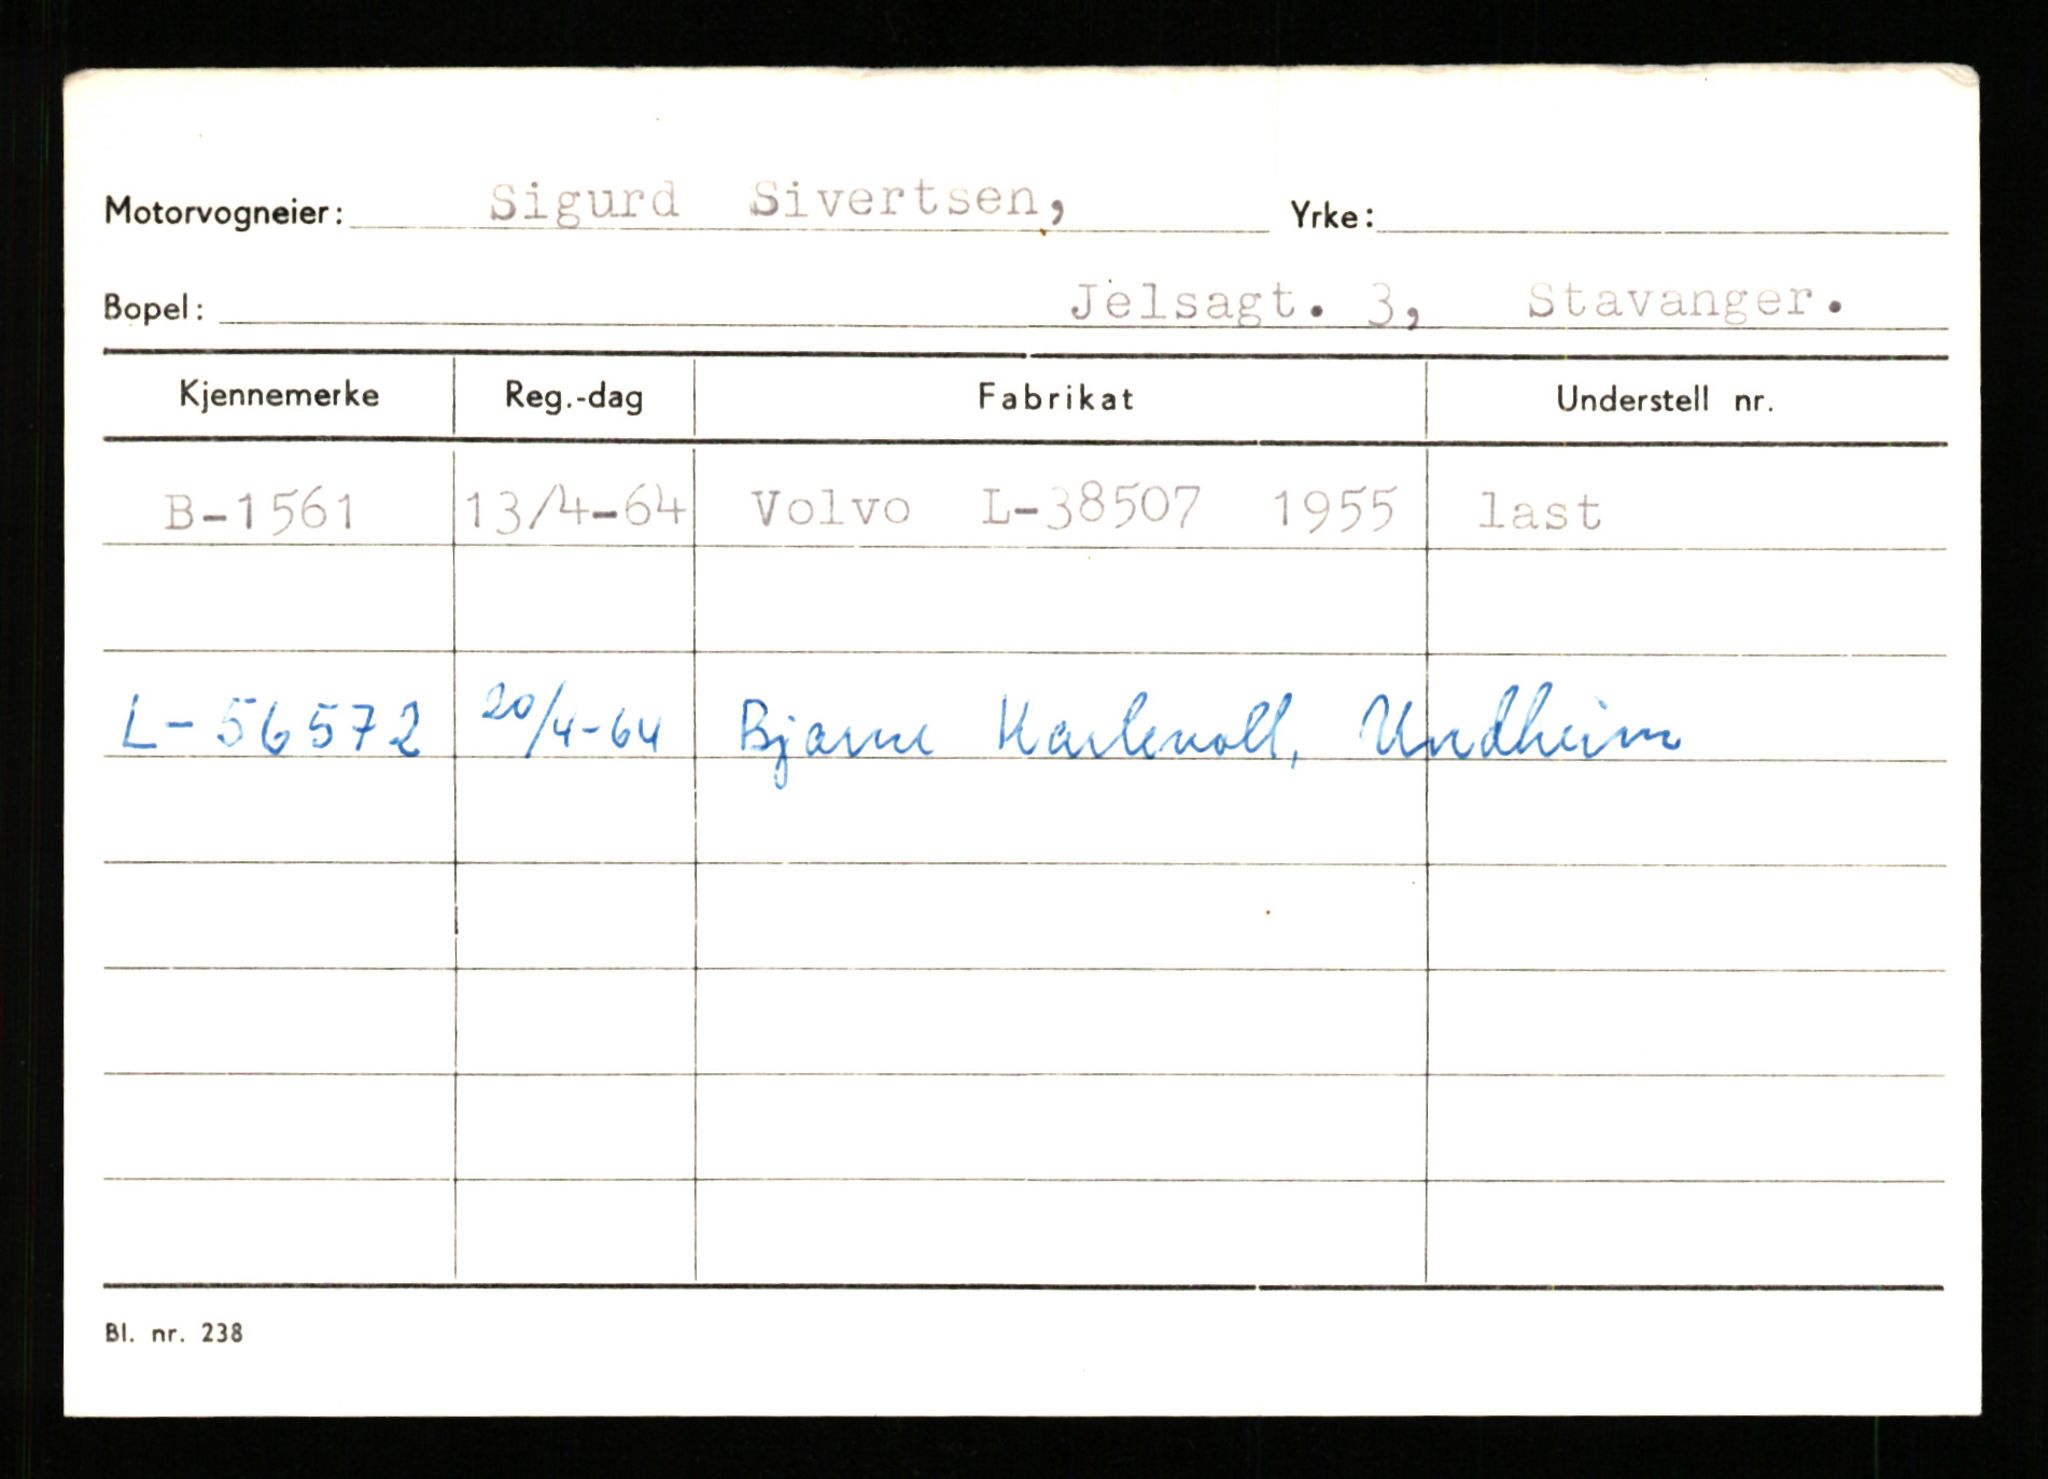 Motorvogneier: Sigurd Sivertsen, Yrke:
Bopel: Jelsagt. 3, Stavanger.
Kjennemerke Reg.-dag Fabrikat Understell nr.
B-1561 13/4-64 Volvo L-38507 1955 last
L-56572 20/4-64 Bjarne Undheim
Bl. nr. 238